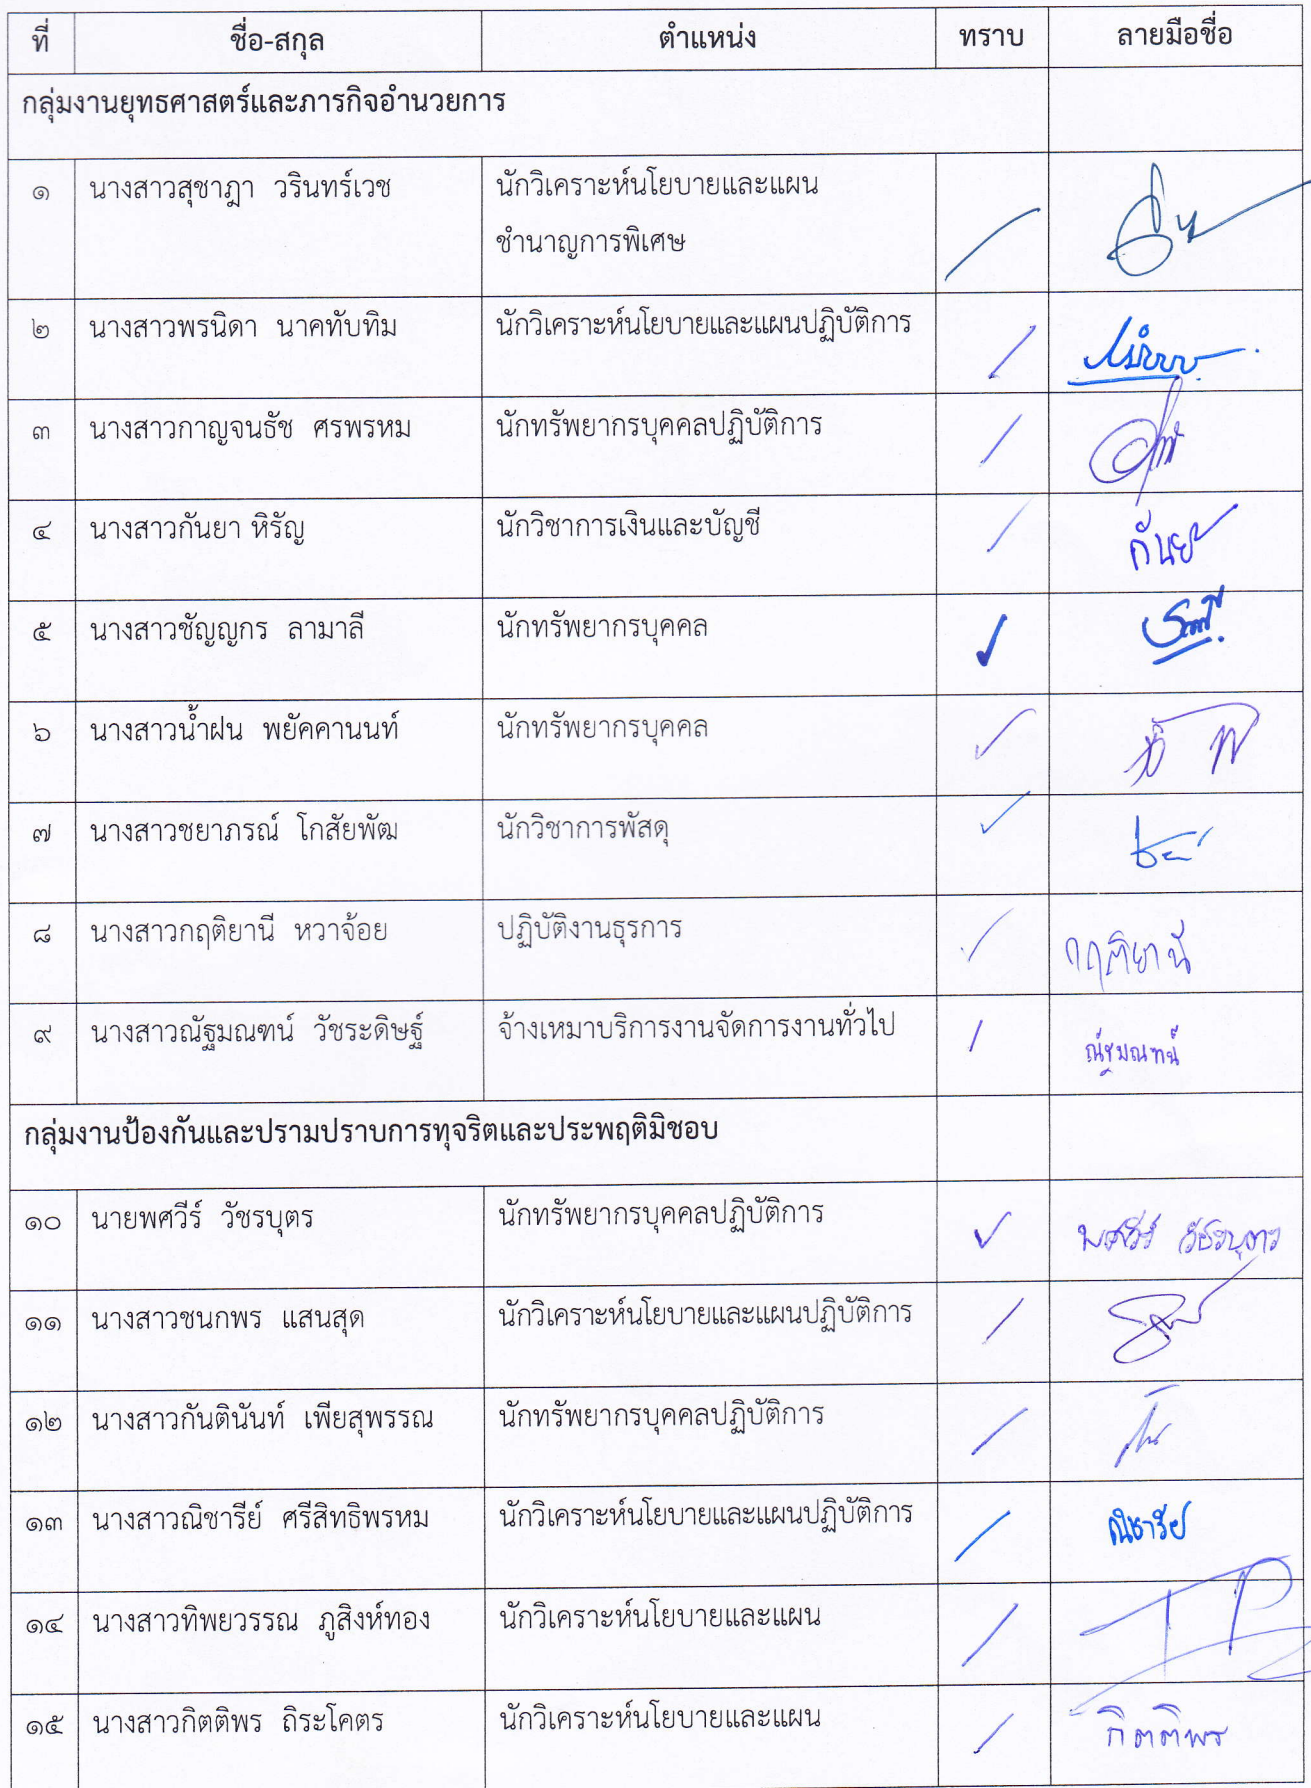 ที่ ชื่อ-สกุล ตำแหน่ง ทราบ ลายมือชื่อ
กลุ่มงานยุทธศาสตร์และภารกิจอำนวยการ
๑ นางสาวสุชาฎา วรินทร์เวช นักวิเคราะห์นโยบายและแผน
ชำนาญการพิเศษ
๒ นางสาวพรนิดา นาคทับทิม นักวิเคราะห์นโยบายและแผนปฏิบัติการ
๓ นางสาวกาญจนธัช ศรพรหม นักทรัพยากรบุคคลปฏิบัติการ
๔ นางสาวกันยา หิรัญ นักวิชาการเงินและบัญชี กันยา
๕ นางสาวชัญญกร ลามาลี นักทรัพยากรบุคคล
๖ นางสาวน้ำฝน พยัคคานนท์ นักทรัพยากรบุคคล
๗ นางสาวชยาภรณ์ โกสัยพัฒ นักวิชาการพัสดุ
๘ นางสาวกฤติยานี หวาจ้อย ปฏิบัติงานธุรการ กฤติยานี
๙ นางสาวณัฐมณฑน์ วัชระดิษฐ์ จ้างเหมาบริการงานจัดการงานทั่วไป ณัฐมณฑน์
กลุ่มงานป้องกันและปรามปราบการทุจริตและประพฤติมิชอบ
๑๐ นายพศวีร์ วัชรบุตร นักทรัพยากรบุคคลปฏิบัติการ พศวีร์ วัชรบุตร
๑๑ นางสาวชนกพร แสนสุด นักวิเคราะห์นโยบายและแผนปฏิบัติการ
๑๒ นางสาวกันตินันท์ เพียสุพรรณ นักทรัพยากรบุคคลปฏิบัติการ
๑๓ นางสาวณิชารีย์ ศรีสิทธิพรหม นักวิเคราะห์นโยบายและแผนปฏิบัติการ ณิชารีย์
๑๔ นางสาวทิพยวรรณ ภูสิงห์ทอง นักวิเคราะห์นโยบายและแผน
๑๕ นางสาวกิตติพร ถิระโคตร นักวิเคราะห์นโยบายและแผน กิตติพร